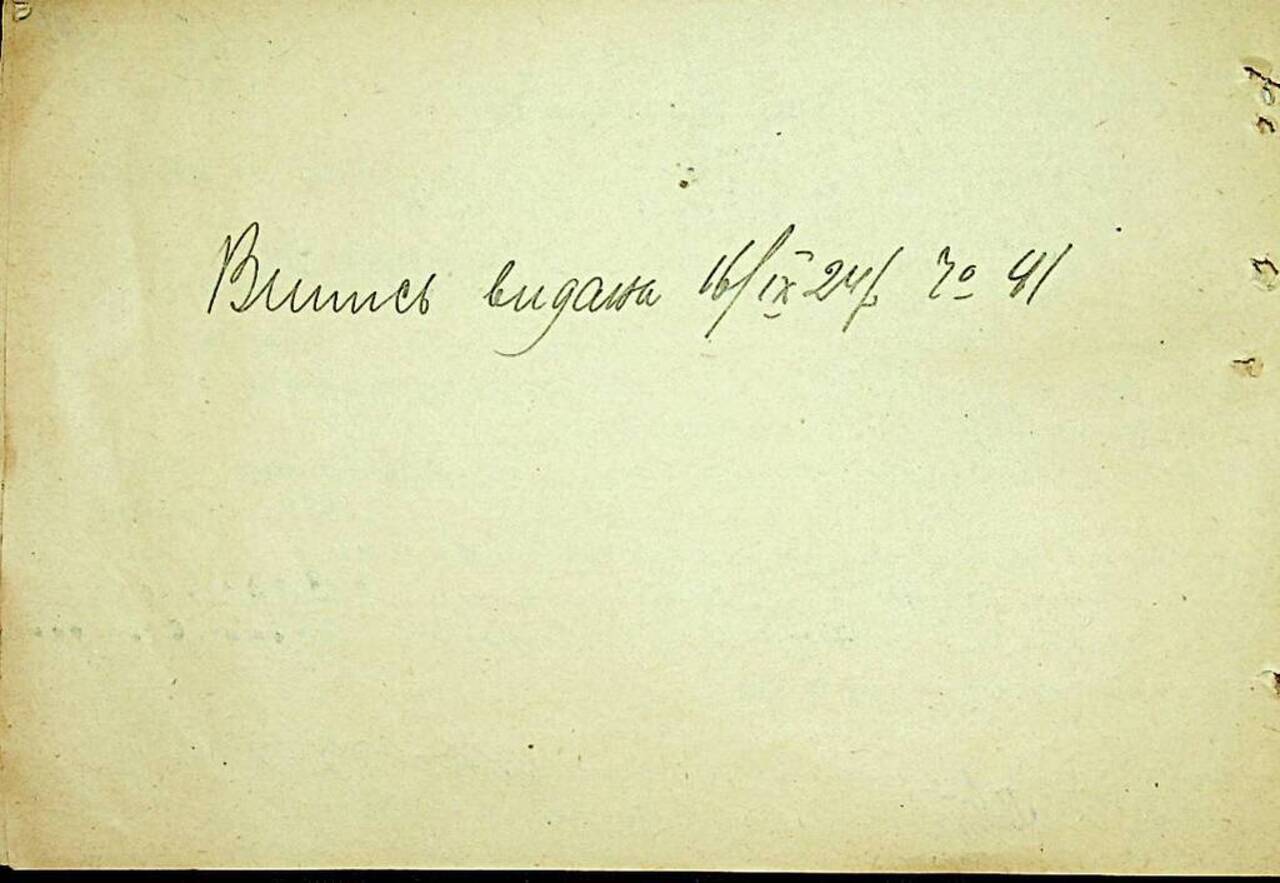 Випись видана 16/IX 24 р. Чо 41